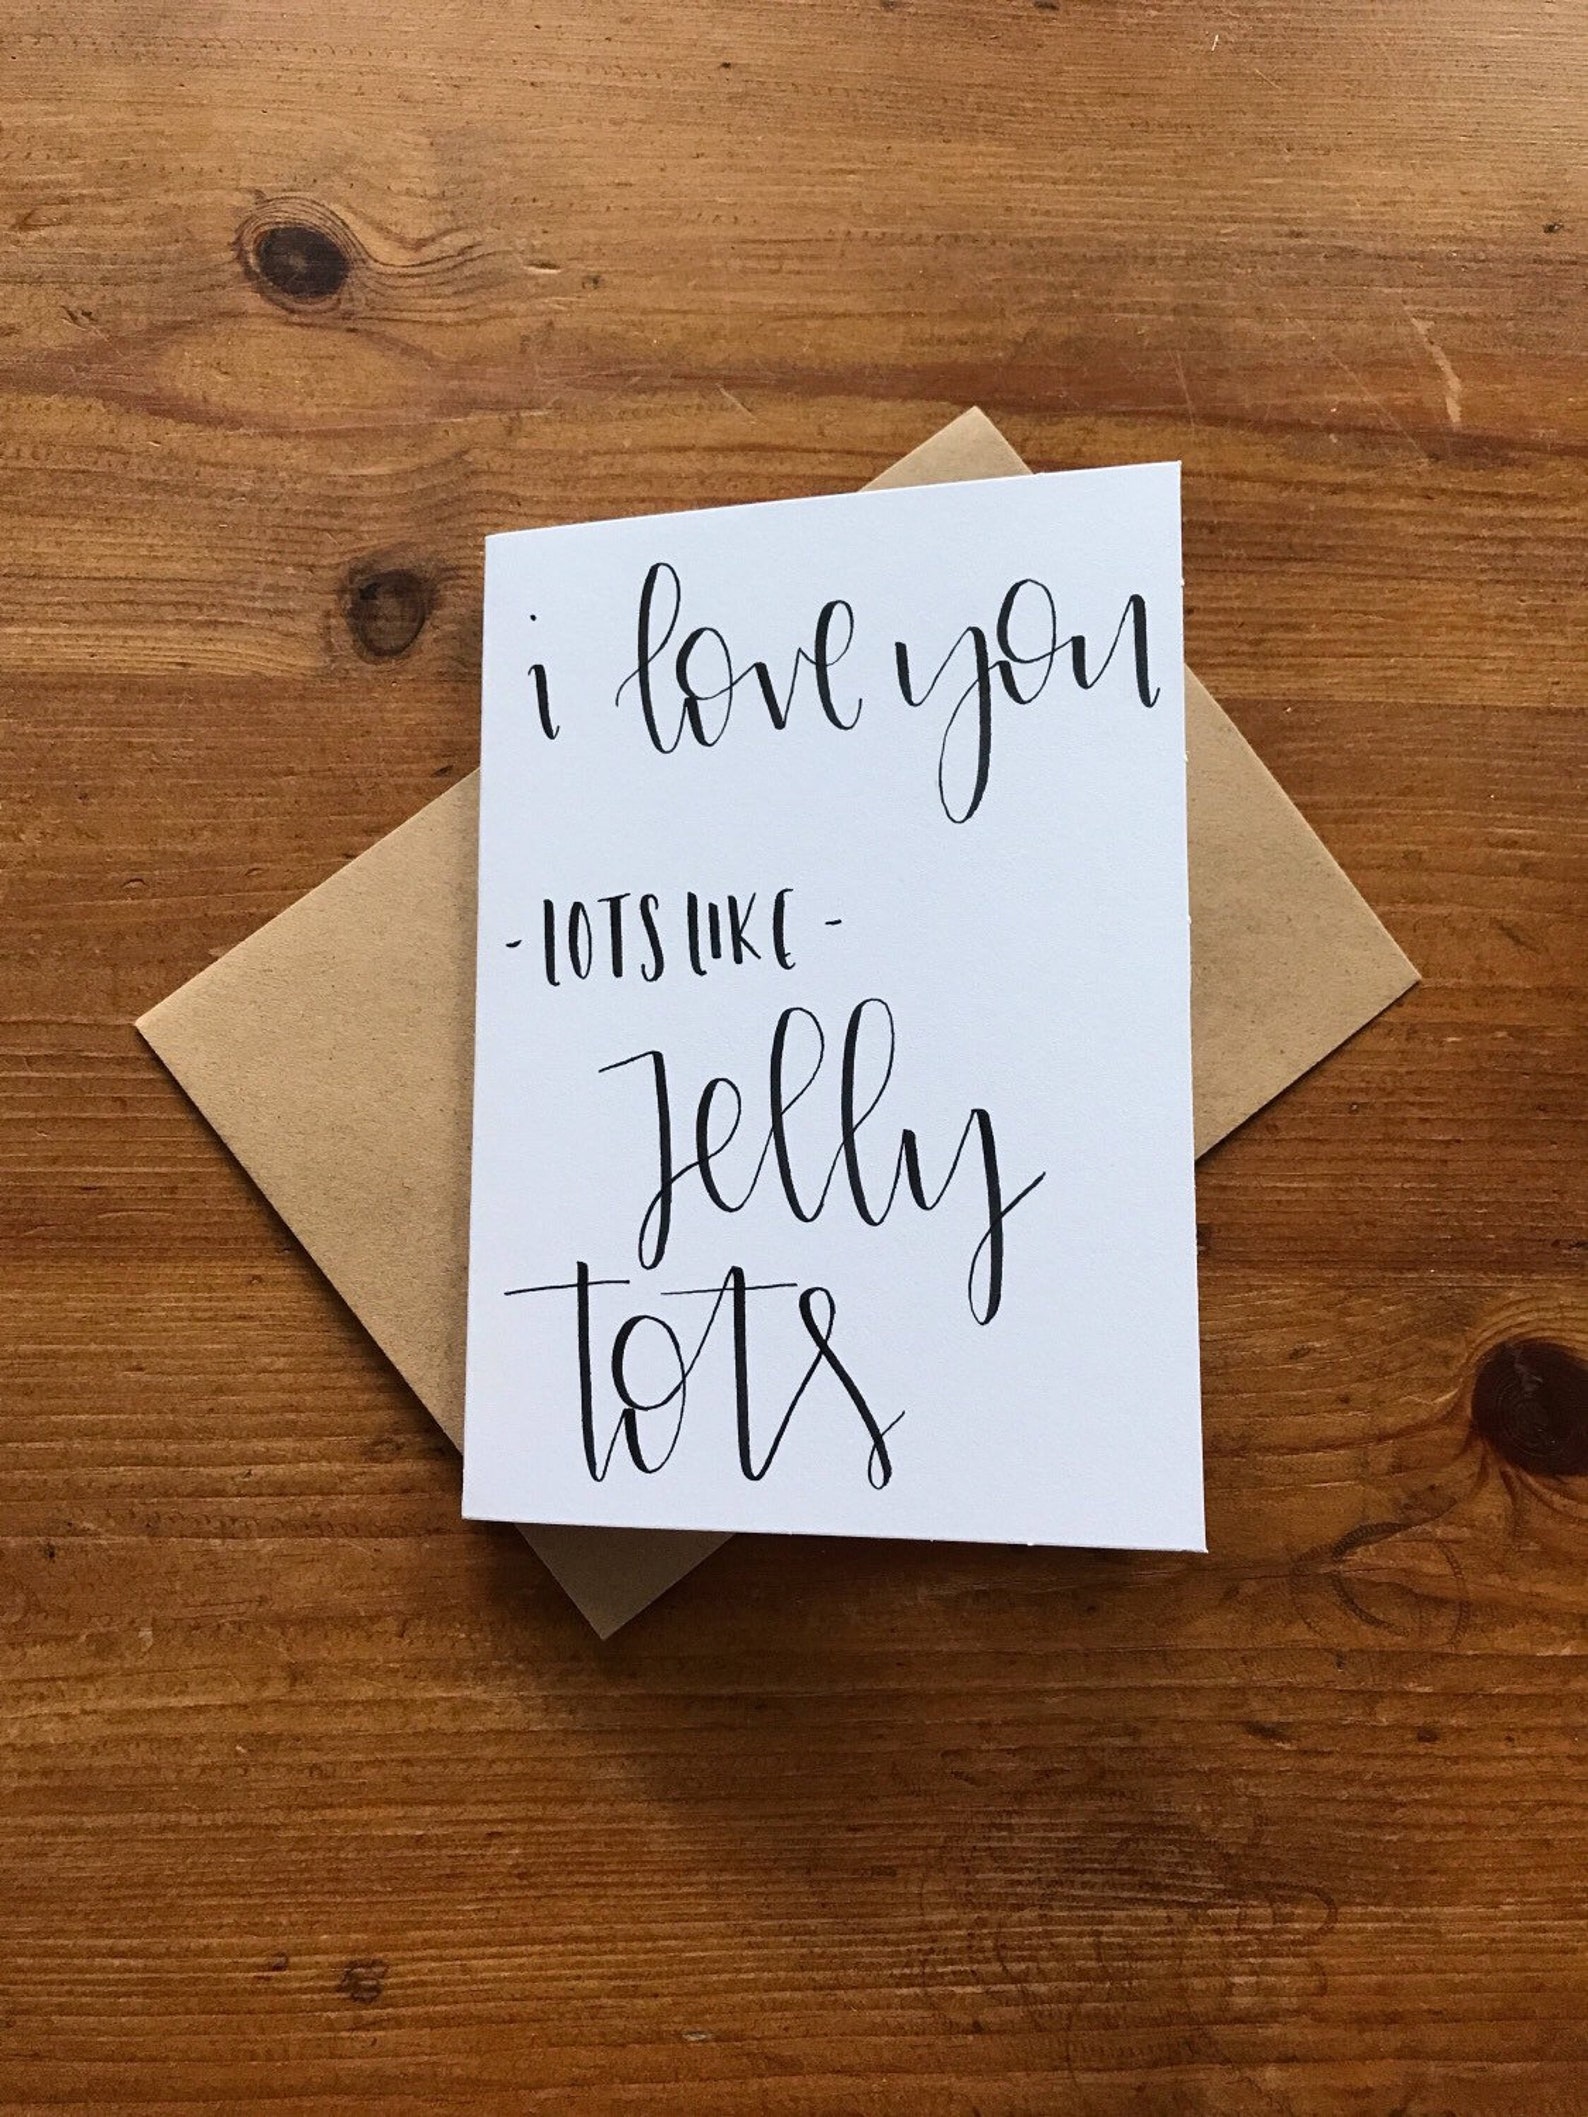 i love you
- LOTS LIKE -
Jelly
Tots